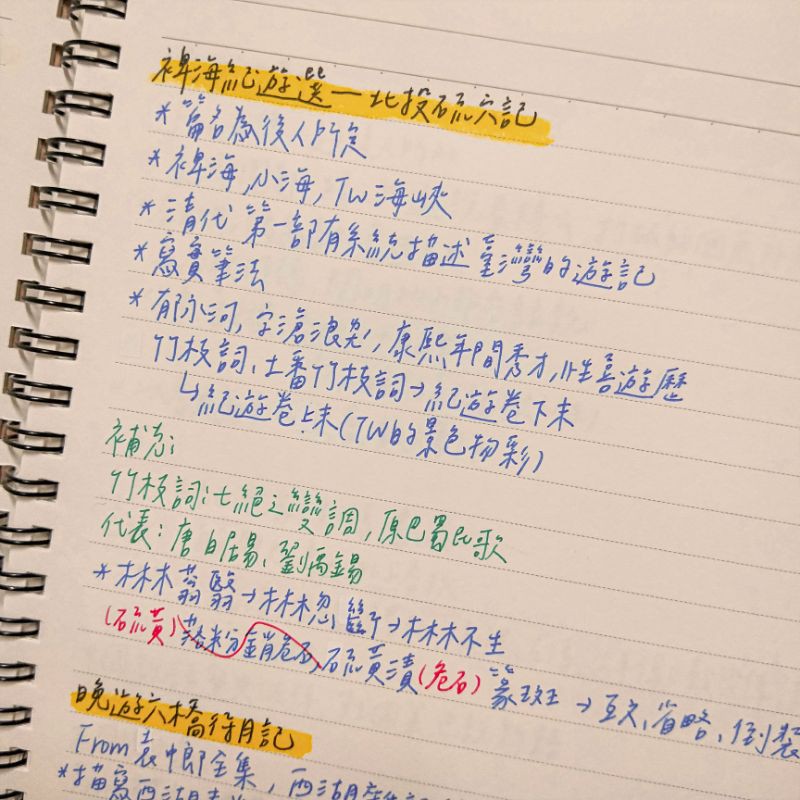 裨海紀遊選—北投硫穴記
*篇名為後人所定
*裨海,小海,TW海峽
*清代第一部有系統描述臺灣的遊記
*寫實筆法
*郁永河,字滄浪,康熙年間秀才,性喜遊歷
竹枝詞、土番竹枝詞→紀遊卷下末
↳紀遊卷上末(TW的景色物彩)
補充:
竹枝詞:七絕之變調,原巴蜀民歌
代表:唐白居易、劉禹錫
*林木蓊翳→林木忽斷→林木不生
(硫黃)蒸粉銷危石,硫黃漬(危石)篆斑→互文,省略、倒裝
晚遊六橋待月記
From袁中郎全集,西湖
*描寫西湖